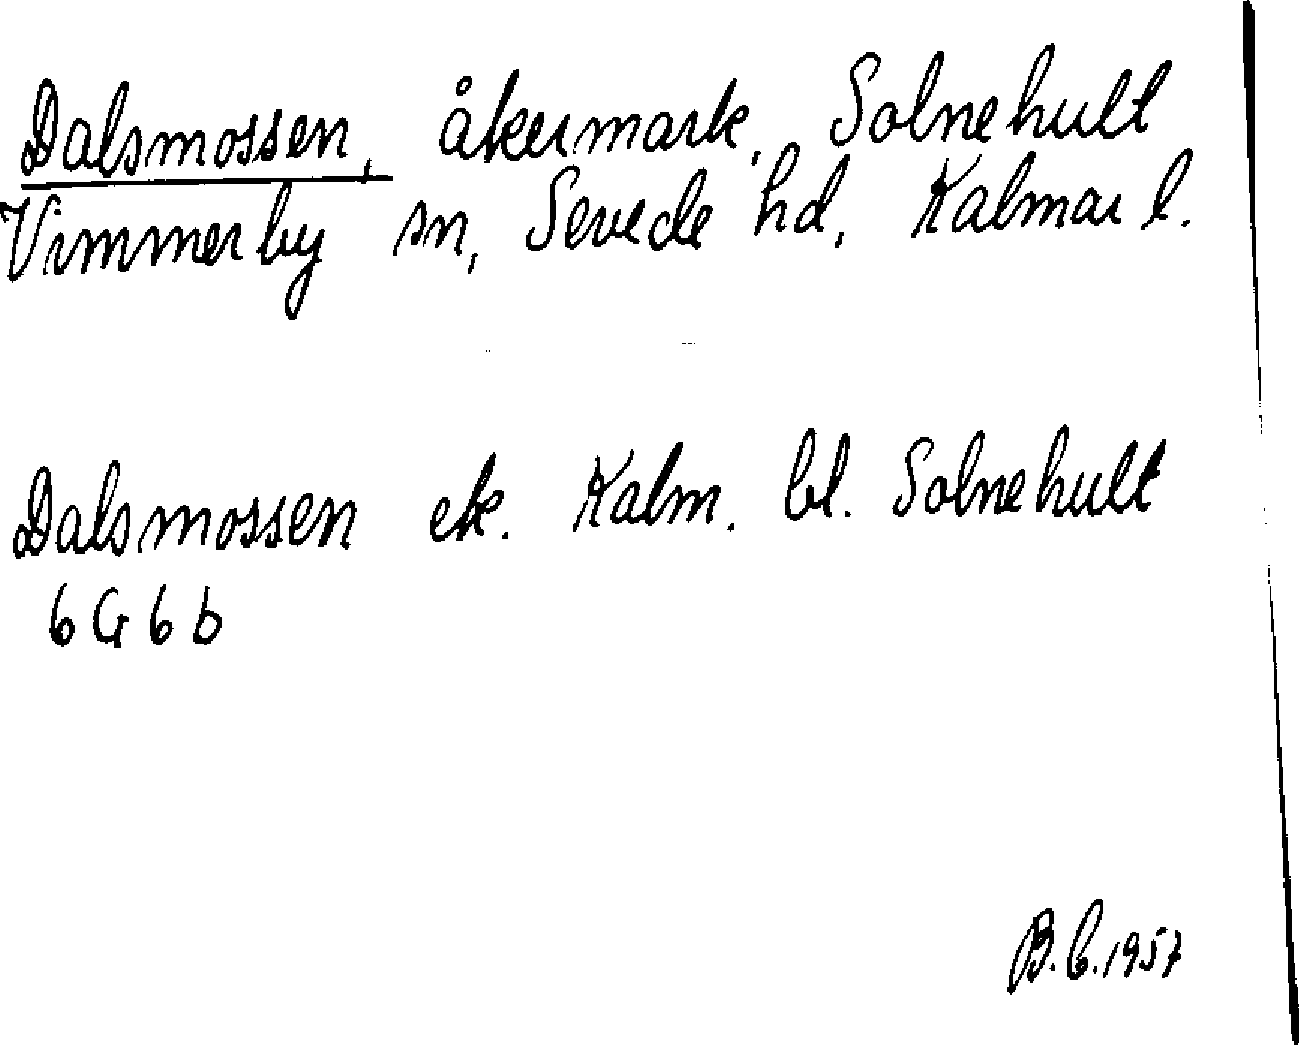 Dalsmossen, åkermark, Solnehult
Vimmerby sn, Sevede hd, Kalmar l.
Dalsmossen ek. Kalm. bl. Solnehult
6G6b
B.C.1957